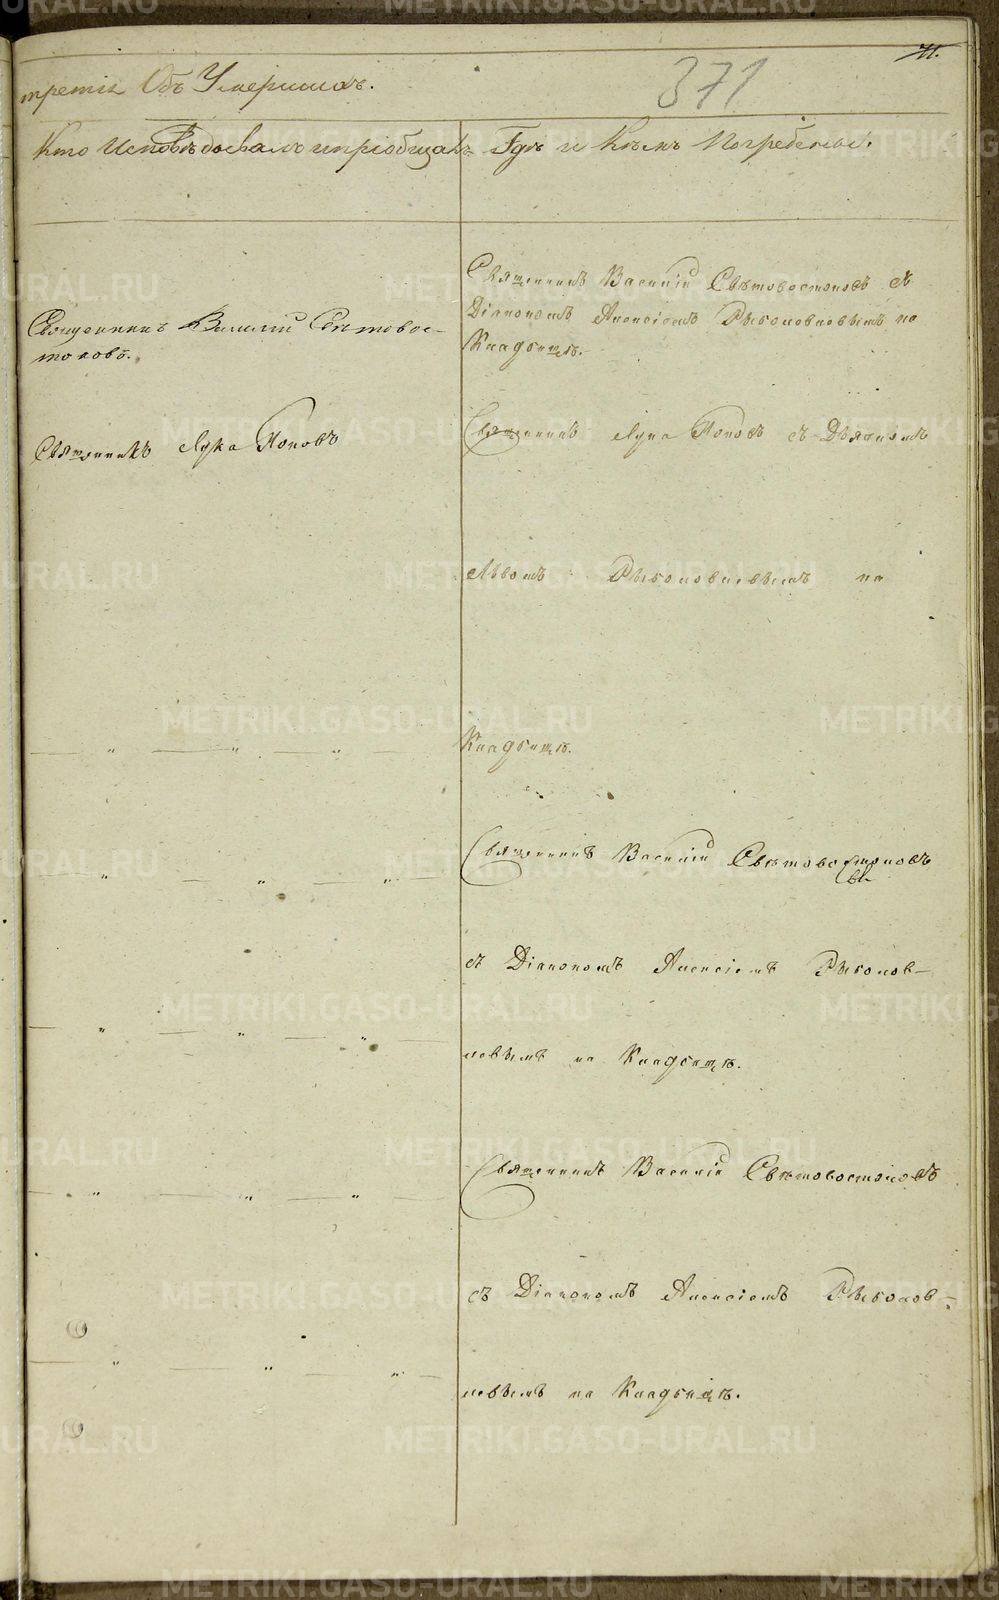 71.
371
третія Объ Умершихъ.
Кто Исповѣдовалъ и пріобщалъ
Гдѣ и Кѣмъ Погребены.
Священникъ Василій Свѣтовос-
токовъ.
Священникъ Василій Свѣтовостоковъ съ
Діакономъ Алексіемъ Рыболовлевымъ на
Кладбищѣ.
Священникъ Лука Поповъ
Священникъ Лука Поповъ съ Дьячкомъ
Львомъ Рыболовлевымъ на
Кладбищѣ.
Священникъ Василій Свѣтовостоковъ
съ Діакономъ Алексіемъ Рыболов-
левымъ на Кладбищѣ.
Священникъ Василій Свѣтовостоковъ
съ Діакономъ Алексіемъ Рыболов-
левымъ на Кладбищѣ.
METRIKI.GASO-URAL.RU